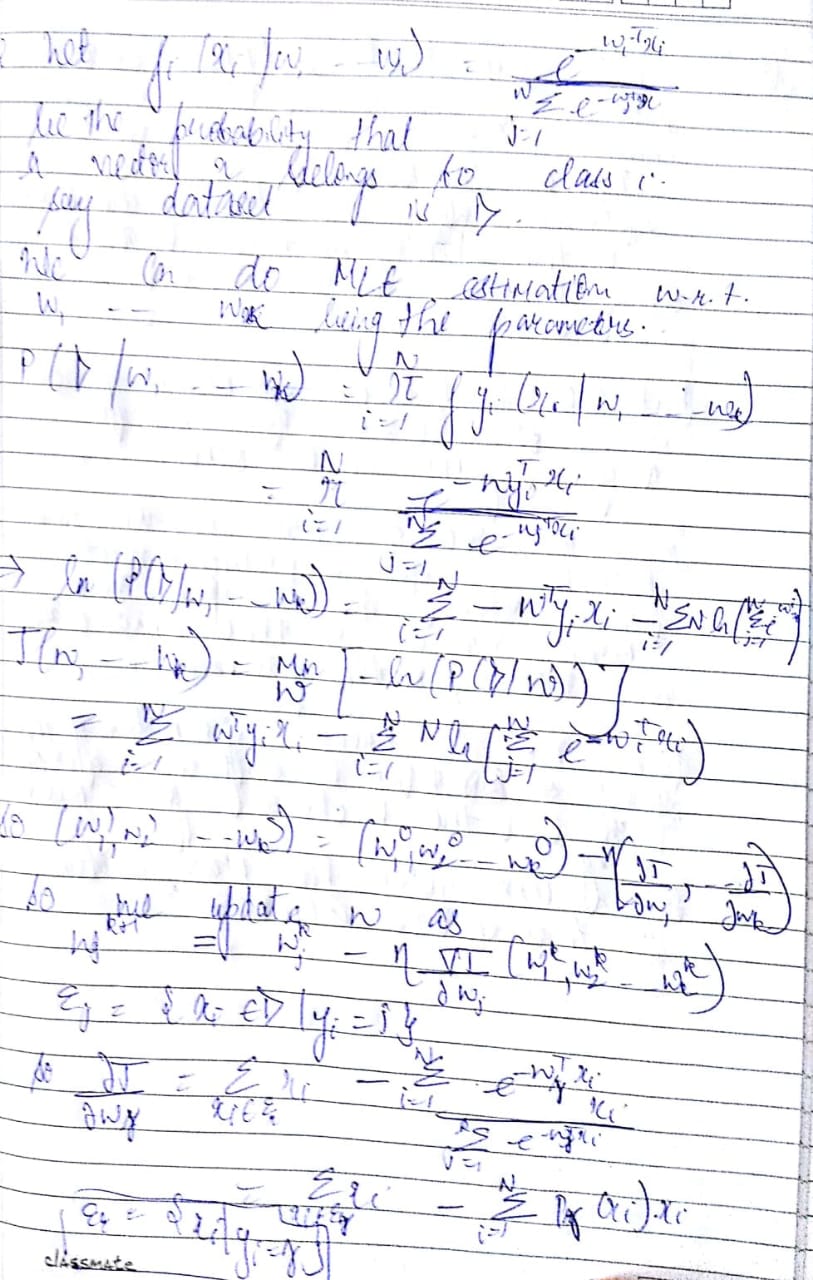 let f_i (x_i / w_1 -- w_k) = e^{-w_i^T x_i} / Σ_{j=1}^{N} e^{-w_j^T x}
be the probability that
a vector x belongs to class i.
say dataset is D.
We can do MLE estimation w.r.t.
w_1 -- w_k being the parameters.
P(D / w_1 -- w_k) = π_{i=1}^{N} f_{y_i} (x_i / w_1 -- w_k)
= π_{i=1}^{N} e^{-w_{y_i}^T x_i} / Σ_{j=1}^{N} e^{-w_j^T x_i}
⇒ ln (P(D/w_1 -- w_k)) = Σ_{i=1}^{N} - w^T_{y_i} x_i - Σ_{i=1}^{N} N ln (Σ_{j=1}
J(w_1 -- w_k) = Min_w [-ln (P(D/w))]
= Σ_{i=1}^{N} w^T_{y_i} x_i - Σ_{i=1}^{N} N ln (Σ_{j=1} e^{-w_i^T x_i})
so (w_1^1, w_2^1 -- w_k^1) = (w_1^0, w_2^0 -- w_k^0) - η(∂J/∂w_1, -- ∂J/∂w_k)
so we update w as
w_j^{k+1} = w_j^k - η ∇J/∂w_j (w_1^k, w_2^k -- w_k^k)
ε_j = {x_i ∈ D / y_i = j}
so ∂J/∂w_γ = Σ_{x_i ∈ ε_i} x_i - Σ_{i=1}^{N} e^{-w_γ^T x_i} x_i / Σ_{j=1} e^{-w_j^T x_i}
= Σ x_i - Σ_{i=1}^{N} P_γ (x_i) x_i
ε_γ = {x_i / y_i = γ}
classmate